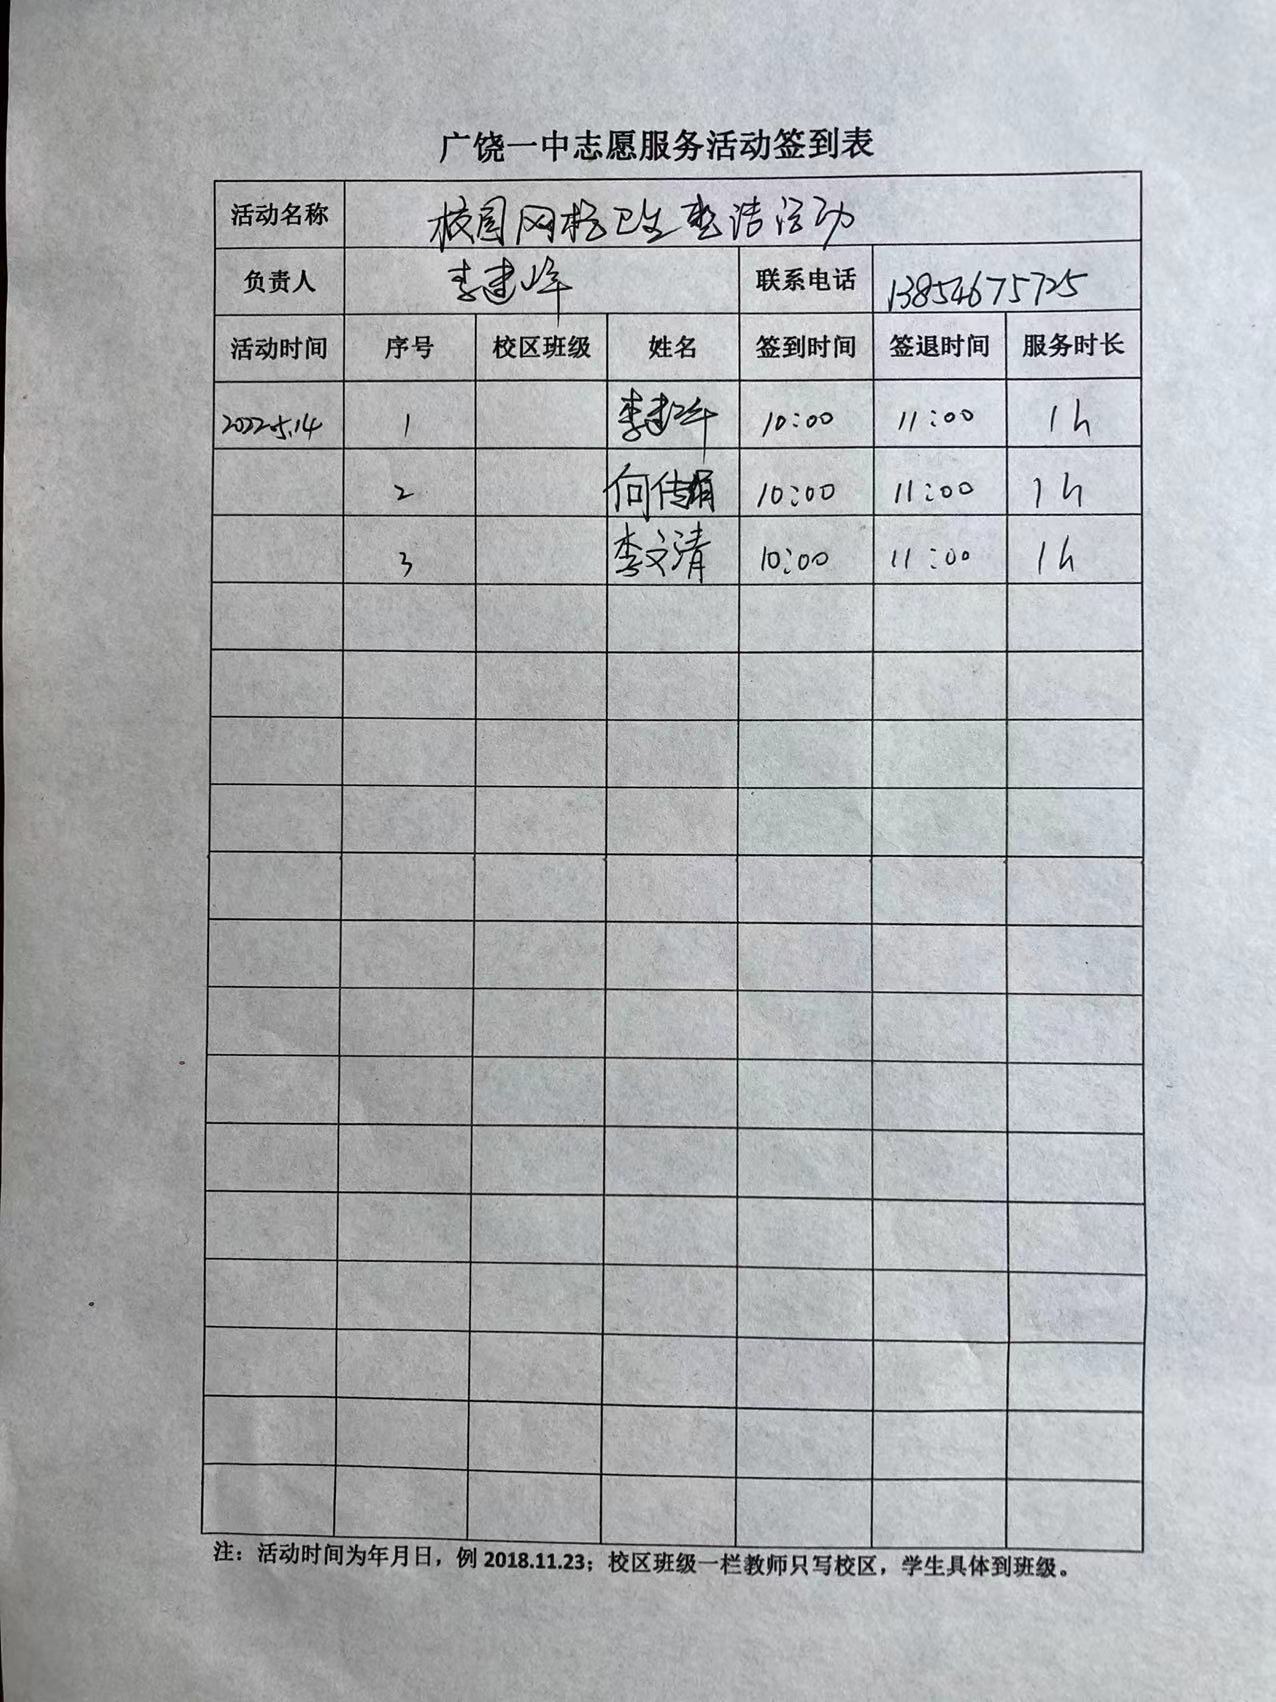 广饶一中志愿服务活动签到表
活动名称 校园网格卫生整洁活动
负责人 李建峰 联系电话 13854675725
活动时间 序号 校区班级 姓名 签到时间 签退时间 服务时长
2022.5.14 1 李建峰 10:00 11:00 1h
2 何传娟 10:00 11:00 1h
3 李文清 10:00 11:00 1h
注：活动时间为年月日，例 2018.11.23；校区班级一栏教师只写校区，学生具体到班级。